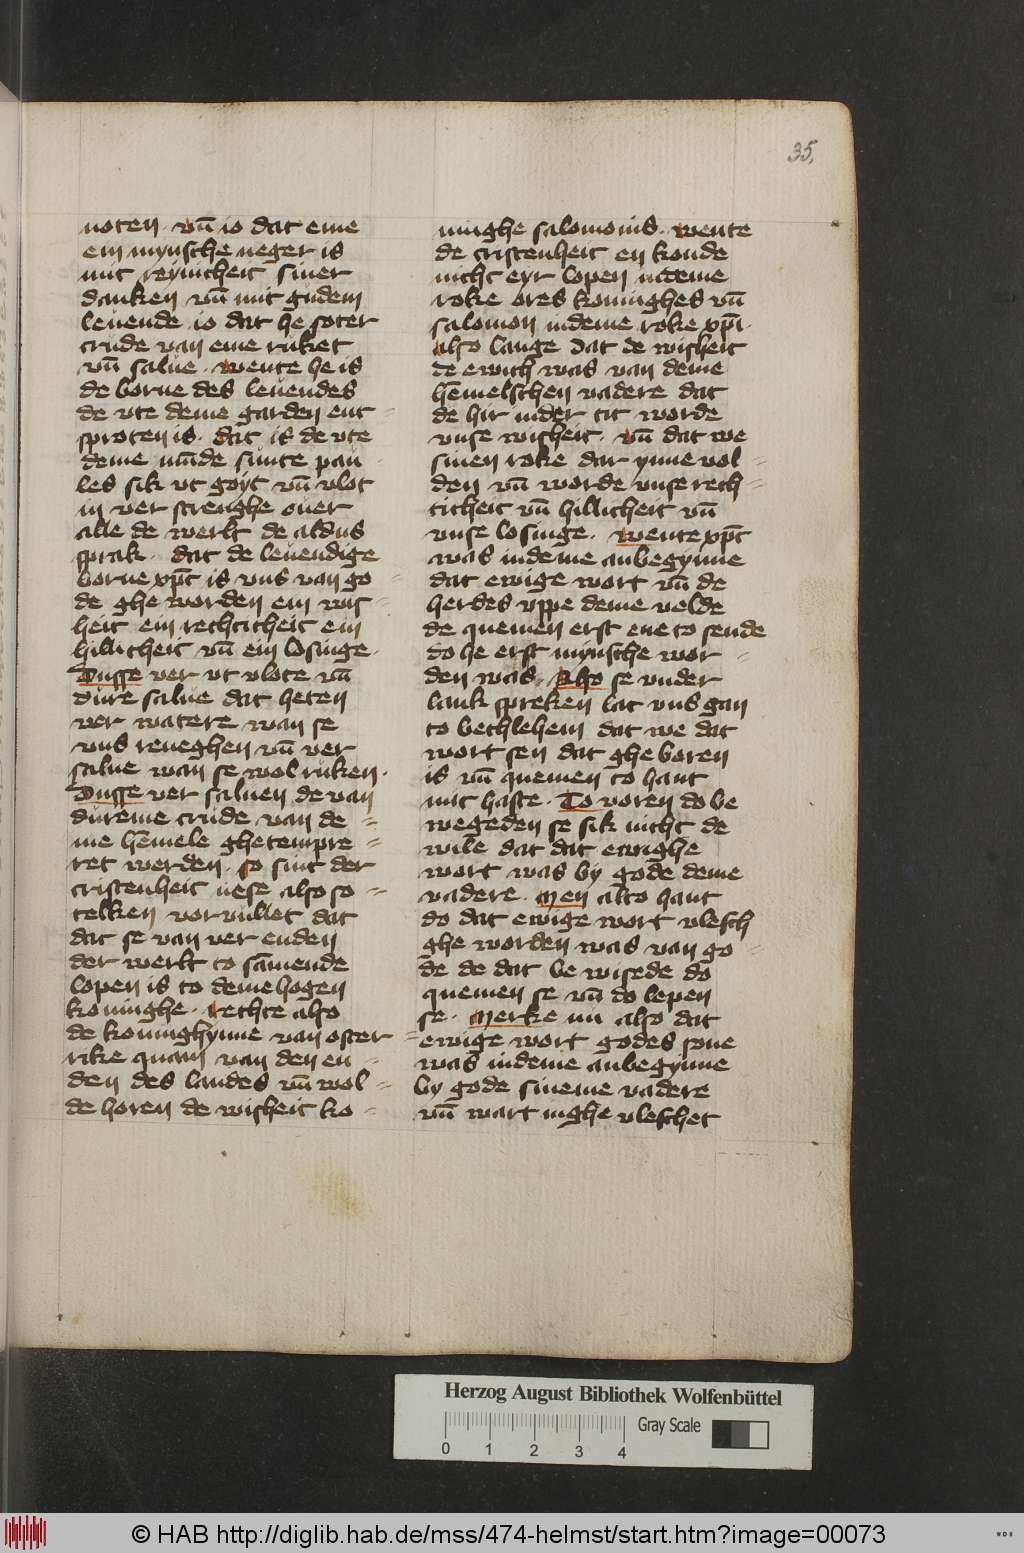 35,
noten · vn̄ io dat eme
ein mynsche neger is
mit reynicheit siner
danken vn̄ mit gudem
leuende io dat he soter
crude van eme ruket
vn̄ salue · wente he is
de borne des leuendes
de vte deme garden ent=
sproten is · dat is de vte
deme mūde sunte pau
les sik vt goyt vn̄ vlot
in ver strenghe ouer
alle de werlt de aldus
sprak · dat de leuendige
borne xp̄c is vns van go=
de ghe worden ein wis=
heit ein rechticheit ein
hillicheit vn̄ ein losinge ·
Dusse ver vt vlote vn̄
dure salue dat heten
ver watere wan se
vns reneghen vn̄ ver
salue wan se wol ruken ·
Dusse ver saluen de van
dureme crude van de=
me hēmele ghetempre=
ret werden · so sint der
cristenheit nese also so=
telken vorvullet dat
dat se van ver enden
der werlt to sāmende
lopen is to deme hogen
koninghe · rechte also
de koninghynne van oster
rike quam van den en=
den des landes vn̄ wol=
de horen de wisheit ko=
ninghe salomonis · wente
de cristenheit en konde
nicht eyr lopen indeme
roke ores koninghes vn̄
salomon indeme roke xp̄i ·
also lange dat de wisheit
de ewich was van deme
hēmelschen vadere dat
de hir inder tit worde
vnse wisheit · vn̄ dat we
sinen roke dar ynne vol=
den vn̄ worde vnse rech=
ticheit vn̄ hillicheit vn̄
vnse losinge · wente xp̄c
was indeme anbegynne
dat ewige wort vn̄ de
herdes vppe deme velde
de quemen erst ene to sende
do he erst mynsche wor=
den was · Also se vnder
lank spreken lat vns gan
to bethlehem dat we dat
wort sen dat ghe boren
is vn̄ quemen to hant
mit haste · To voren do be
wegeden se sik nicht de
wile dat dat ewighe
wort was by gode deme
vadere · Men alto hant
do dat ewige wort vlesch
ghe worden was van go=
de de dat be wisede do
quemen se vn̄ do lepen
se · Merke nu also dat
ewige wort godes sone
was indeme anbegynne
by gode sineme vadere
vn̄ wart inghe vleschet
Herzog August Bibliothek Wolfenbüttel
Gray Scale
0 1 2 3 4
© HAB http://diglib.hab.de/mss/474-helmst/start.htm?image=00073